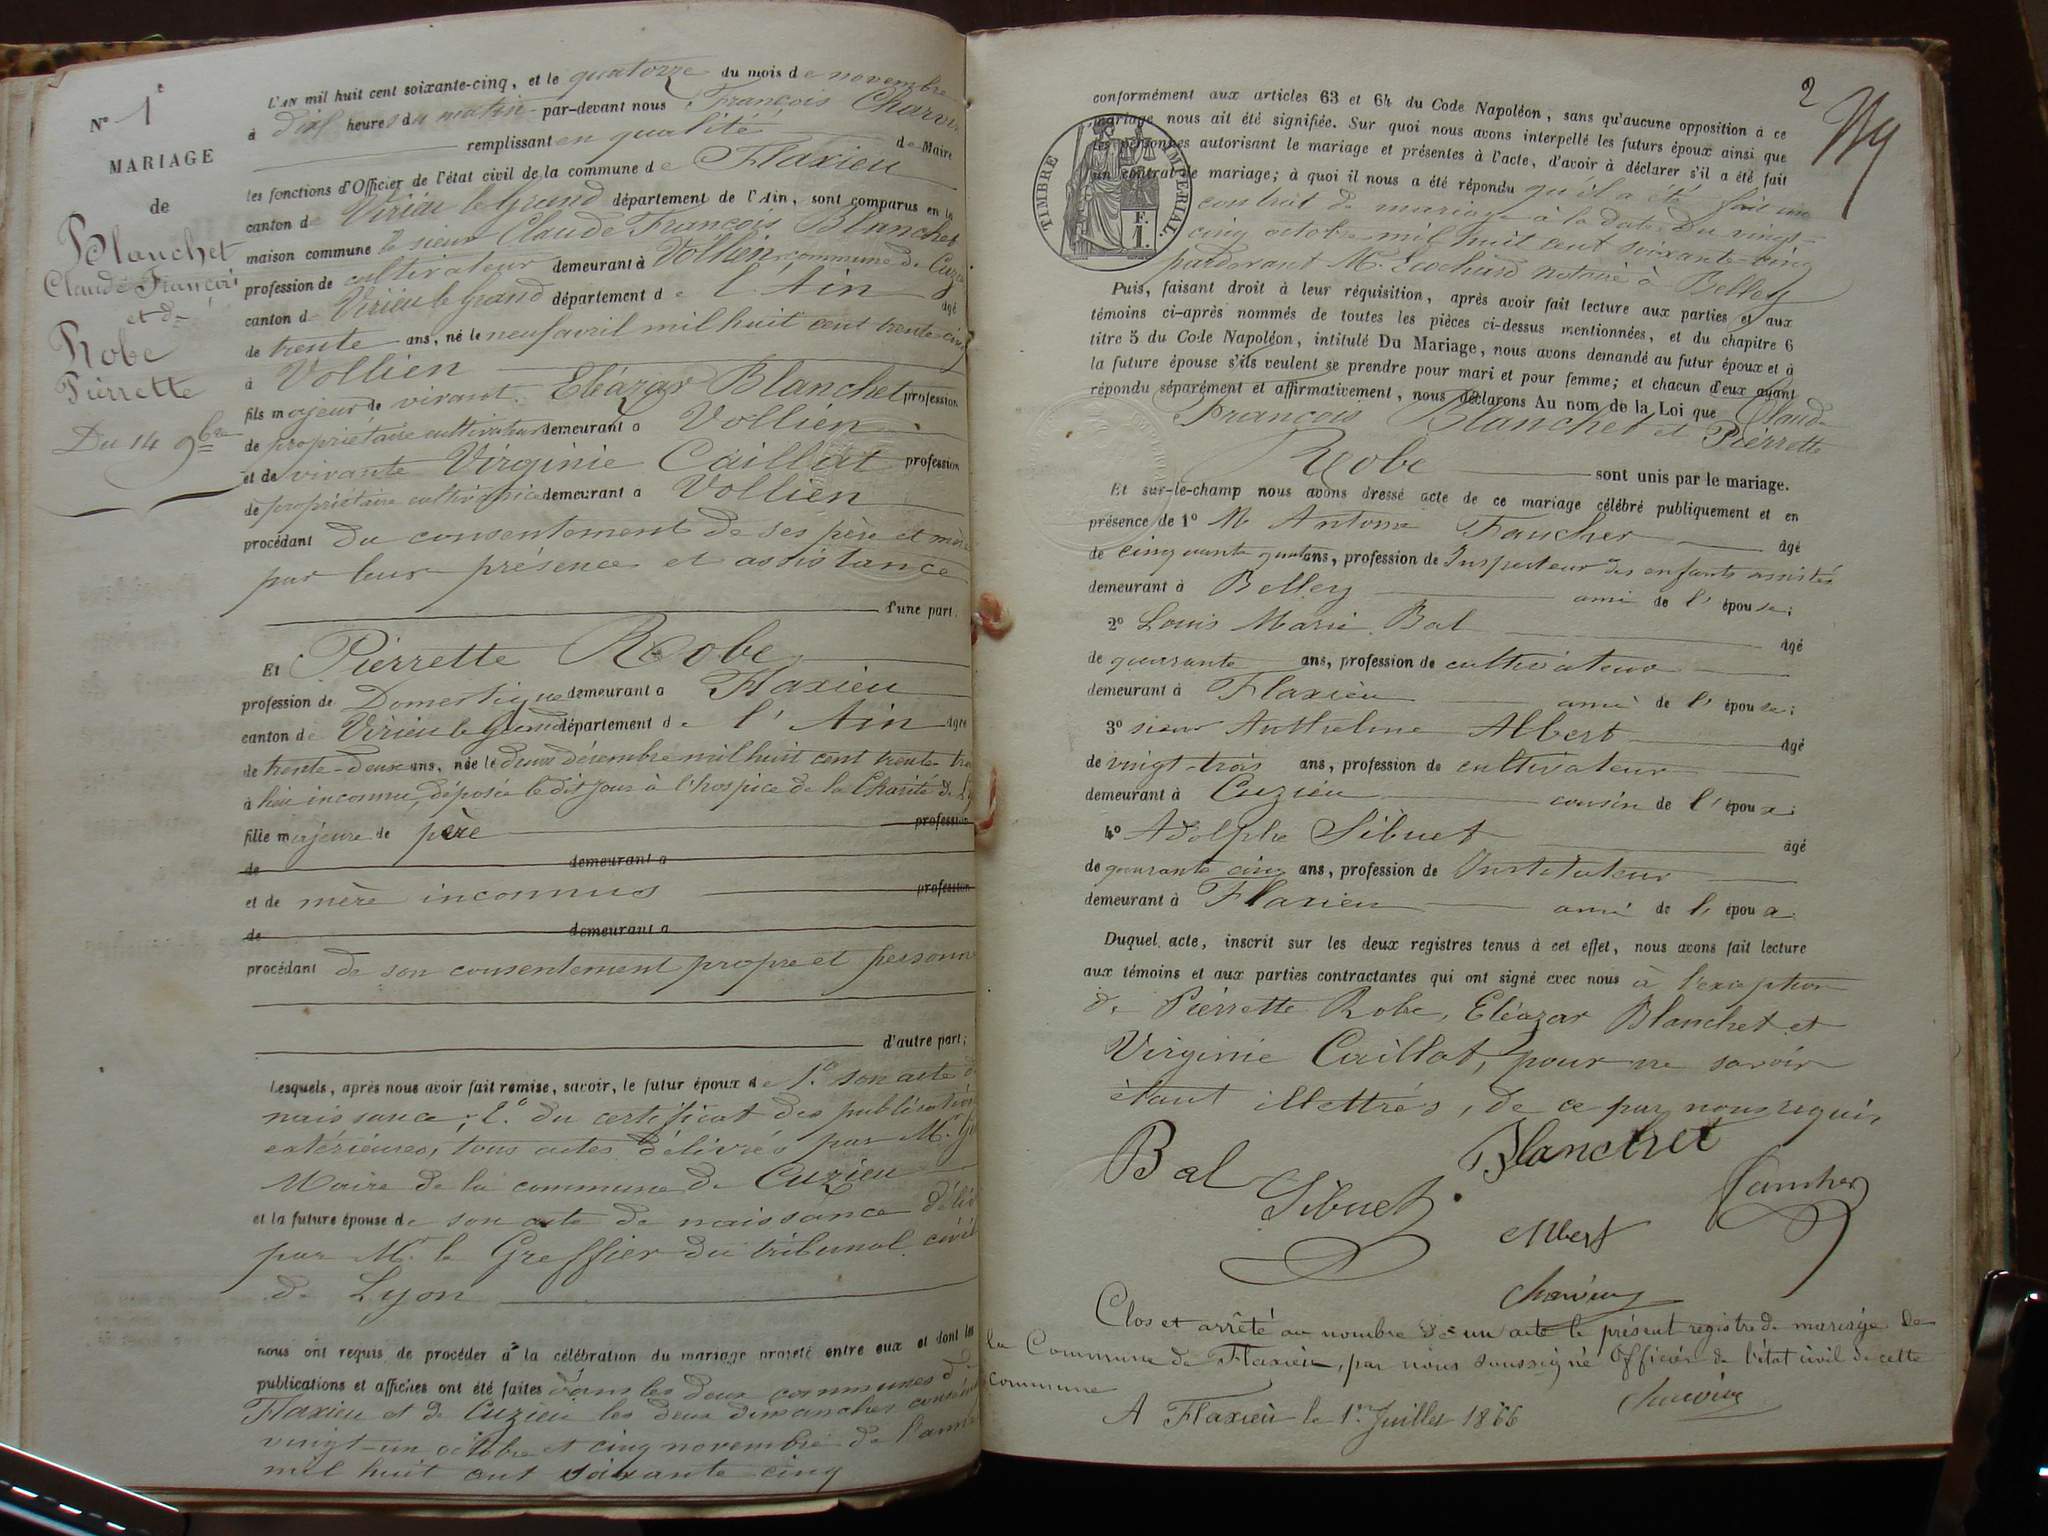 N° 1er
MARIAGE
de
Blanchet
Claude François
et de
Robe
Pierrette
Du 14 9bre
L'AN mil huit cent soixante-cinq, et le quatorze du mois de novembre
à dix heures du matin par-devant nous François Charvin
remplissant en qualité de Maire
les fonctions d'Officier de l'état civil de la commune de Flaxieu
canton de Virieu le Grand département de l'Ain, sont comparus en la
maison commune le sieur Claude François Blanchet
profession de cultivateur demeurant à Vollien commune de Cuzieu
canton de Virieu le Grand département de l'Ain âgé
de trente ans, né le neuf avril mil huit cent trente-cinq
à Vollien
fils majeur de vivant Eléazar Blanchet profession
de propriétaire cultivateur demeurant à Vollien
et de vivante Virginie Caillat profession
de propriétaire cultivatrice demeurant à Vollien
procédant du consentement de ses père et mère
par leur présence et assistance
d'une part.
Et Pierrette Robe
profession de Domestique demeurant à Flaxieu
canton de Virieu le Grand département de l'Ain âgée
de trente-deux ans, née le deux décembre mil huit cent trente-
à lieu inconnu, déposée le dit jour à l'hospice de la Charité de
fille majeure de père profession
de demeurant à
et de mère inconnus profession
de demeurant à
procédant de son consentement propre et
d'autre part;
Lesquels, après nous avoir fait remise, savoir, le futur époux de 1° son acte de
naissance; 2° du certificat des publications
extérieures, tous actes délivrés par Mr
Maire de la commune de Cuzieu
et la future épouse de son acte de naissance
par Mr le Greffier du tribunal civil
de Lyon
nous ont requis de procéder à la célébration du mariage projeté entre eux et dont les
publications et affiches ont été faites dans les deux communes de
Flaxieu et de Cuzieu les deux dimanches
vingt-un octobre et cinq novembre de l'année
mil huit cent soixante cinq
2
conformément aux articles 63 et 64 du Code Napoléon, sans qu'aucune opposition à ce
mariage nous ait été signifiée. Sur quoi nous avons interpellé les futurs époux ainsi que
les personnes autorisant le mariage et présentes à l'acte, d'avoir à déclarer s'il a été fait
un contrat de mariage; à quoi il nous a été répondu qu'il a été fait un
contrat de mariage à la date du vingt-
cinq octobre mil huit cent soixante-cinq
pardevant Me Ecochard notaire à Belley
TIMBRE IMPERIAL.
F.
1.
Puis, faisant droit à leur réquisition, après avoir fait lecture aux parties et aux
témoins ci-après nommés de toutes les pièces ci-dessus mentionnées, et du chapitre 6
titre 5 du Code Napoléon, intitulé Du Mariage, nous avons demandé au futur époux et à
la future épouse s'ils veulent se prendre pour mari et pour femme; et chacun d'eux ayant
répondu séparément et affirmativement, nous déclarons Au nom de la Loi que Claude
François Blanchet et Pierrette
Robe sont unis par le mariage.
Et sur-le-champ nous avons dressé acte de ce mariage célébré publiquement et en
présence de 1° M Antoine Faucher âgé
de cinquante quatre ans, profession de Inspecteur des enfants assistés
demeurant à Belley ami de l'épouse;
2° Louis Marie Bal âgé
de quarante ans, profession de cultivateur
demeurant à Flaxieu ami de l'épouse;
3° sieur Anthelme Albert âgé
de vingt-trois ans, profession de cultivateur
demeurant à Cuzieu cousin de l'époux;
4° Adolphe Sibuet âgé
de quarante cinq ans, profession de Instituteur
demeurant à Flaxieu ami de l'époux.
Duquel acte, inscrit sur les deux registres tenus à cet effet, nous avons fait lecture
aux témoins et aux parties contractantes qui ont signé avec nous à l'exception
de Pierrette Robe, Eléazar Blanchet et
Virginie Caillat, pour ne savoir
étant illettrés, de ce par nous requis,
Bal Blanchet
Sibuet Faucher
Albert
Charvin
Clos et arrêté au nombre de un acte le présent registre de mariage de
la Commune de Flaxieu, par nous soussigné Officier de l'état civil de cette
commune
A Flaxieu le 1er Juillet 1866 Charvin